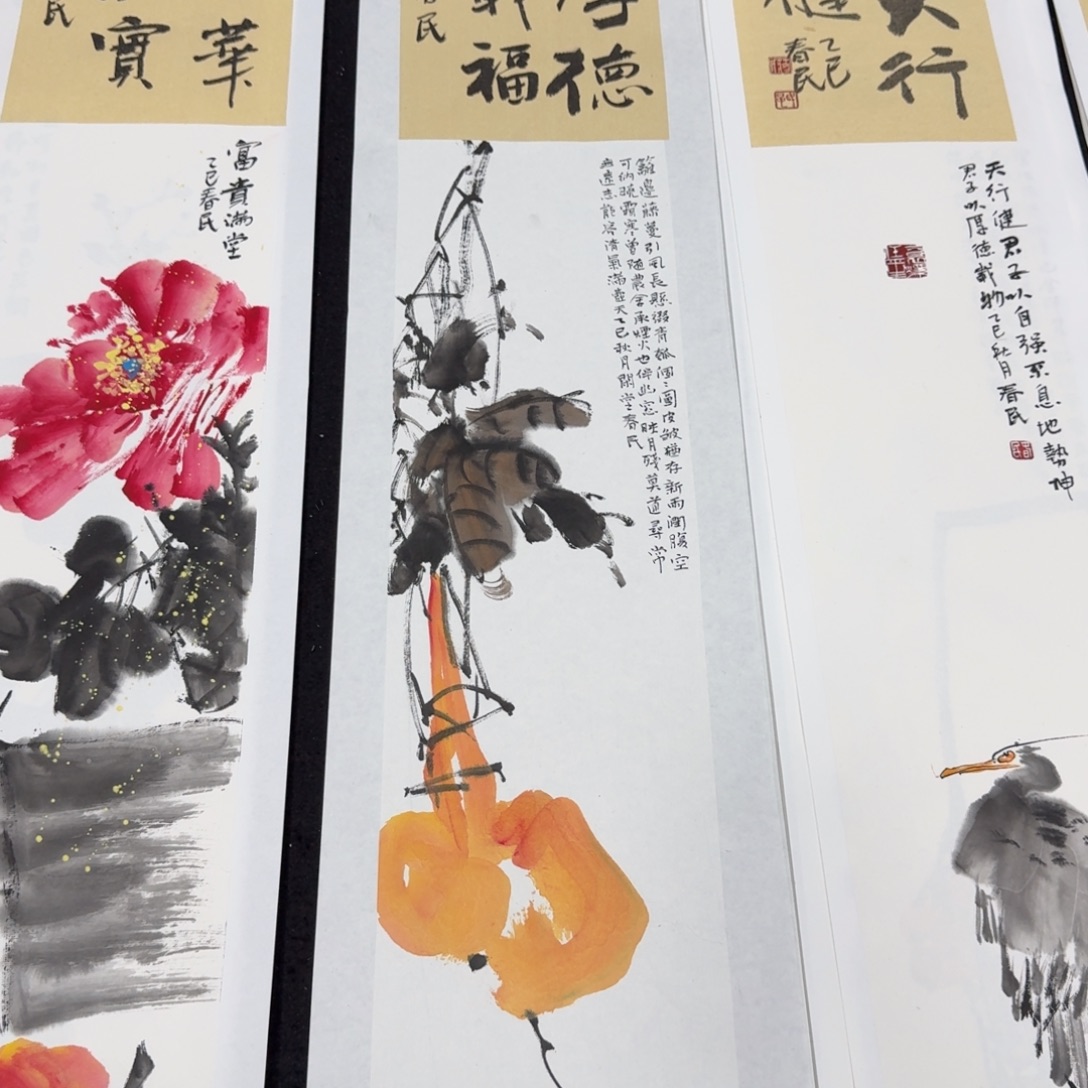 華
實
民
富貴滿堂
乙巳春民
厚德
載福
民
籬邊藤蔓引風長懸綴青瓠個個圓皮皺猶存新雨潤腹空
可納晚霜寒曾隨農舍承煙火也伴山窗映月殘莫道尋常
無遠志能容清氣滿壺天乙巳秋月開堂春民
天行
健
乙巳
春民
天行健君子以自强不息地勢坤
君子以厚德載物乙巳秋月春民